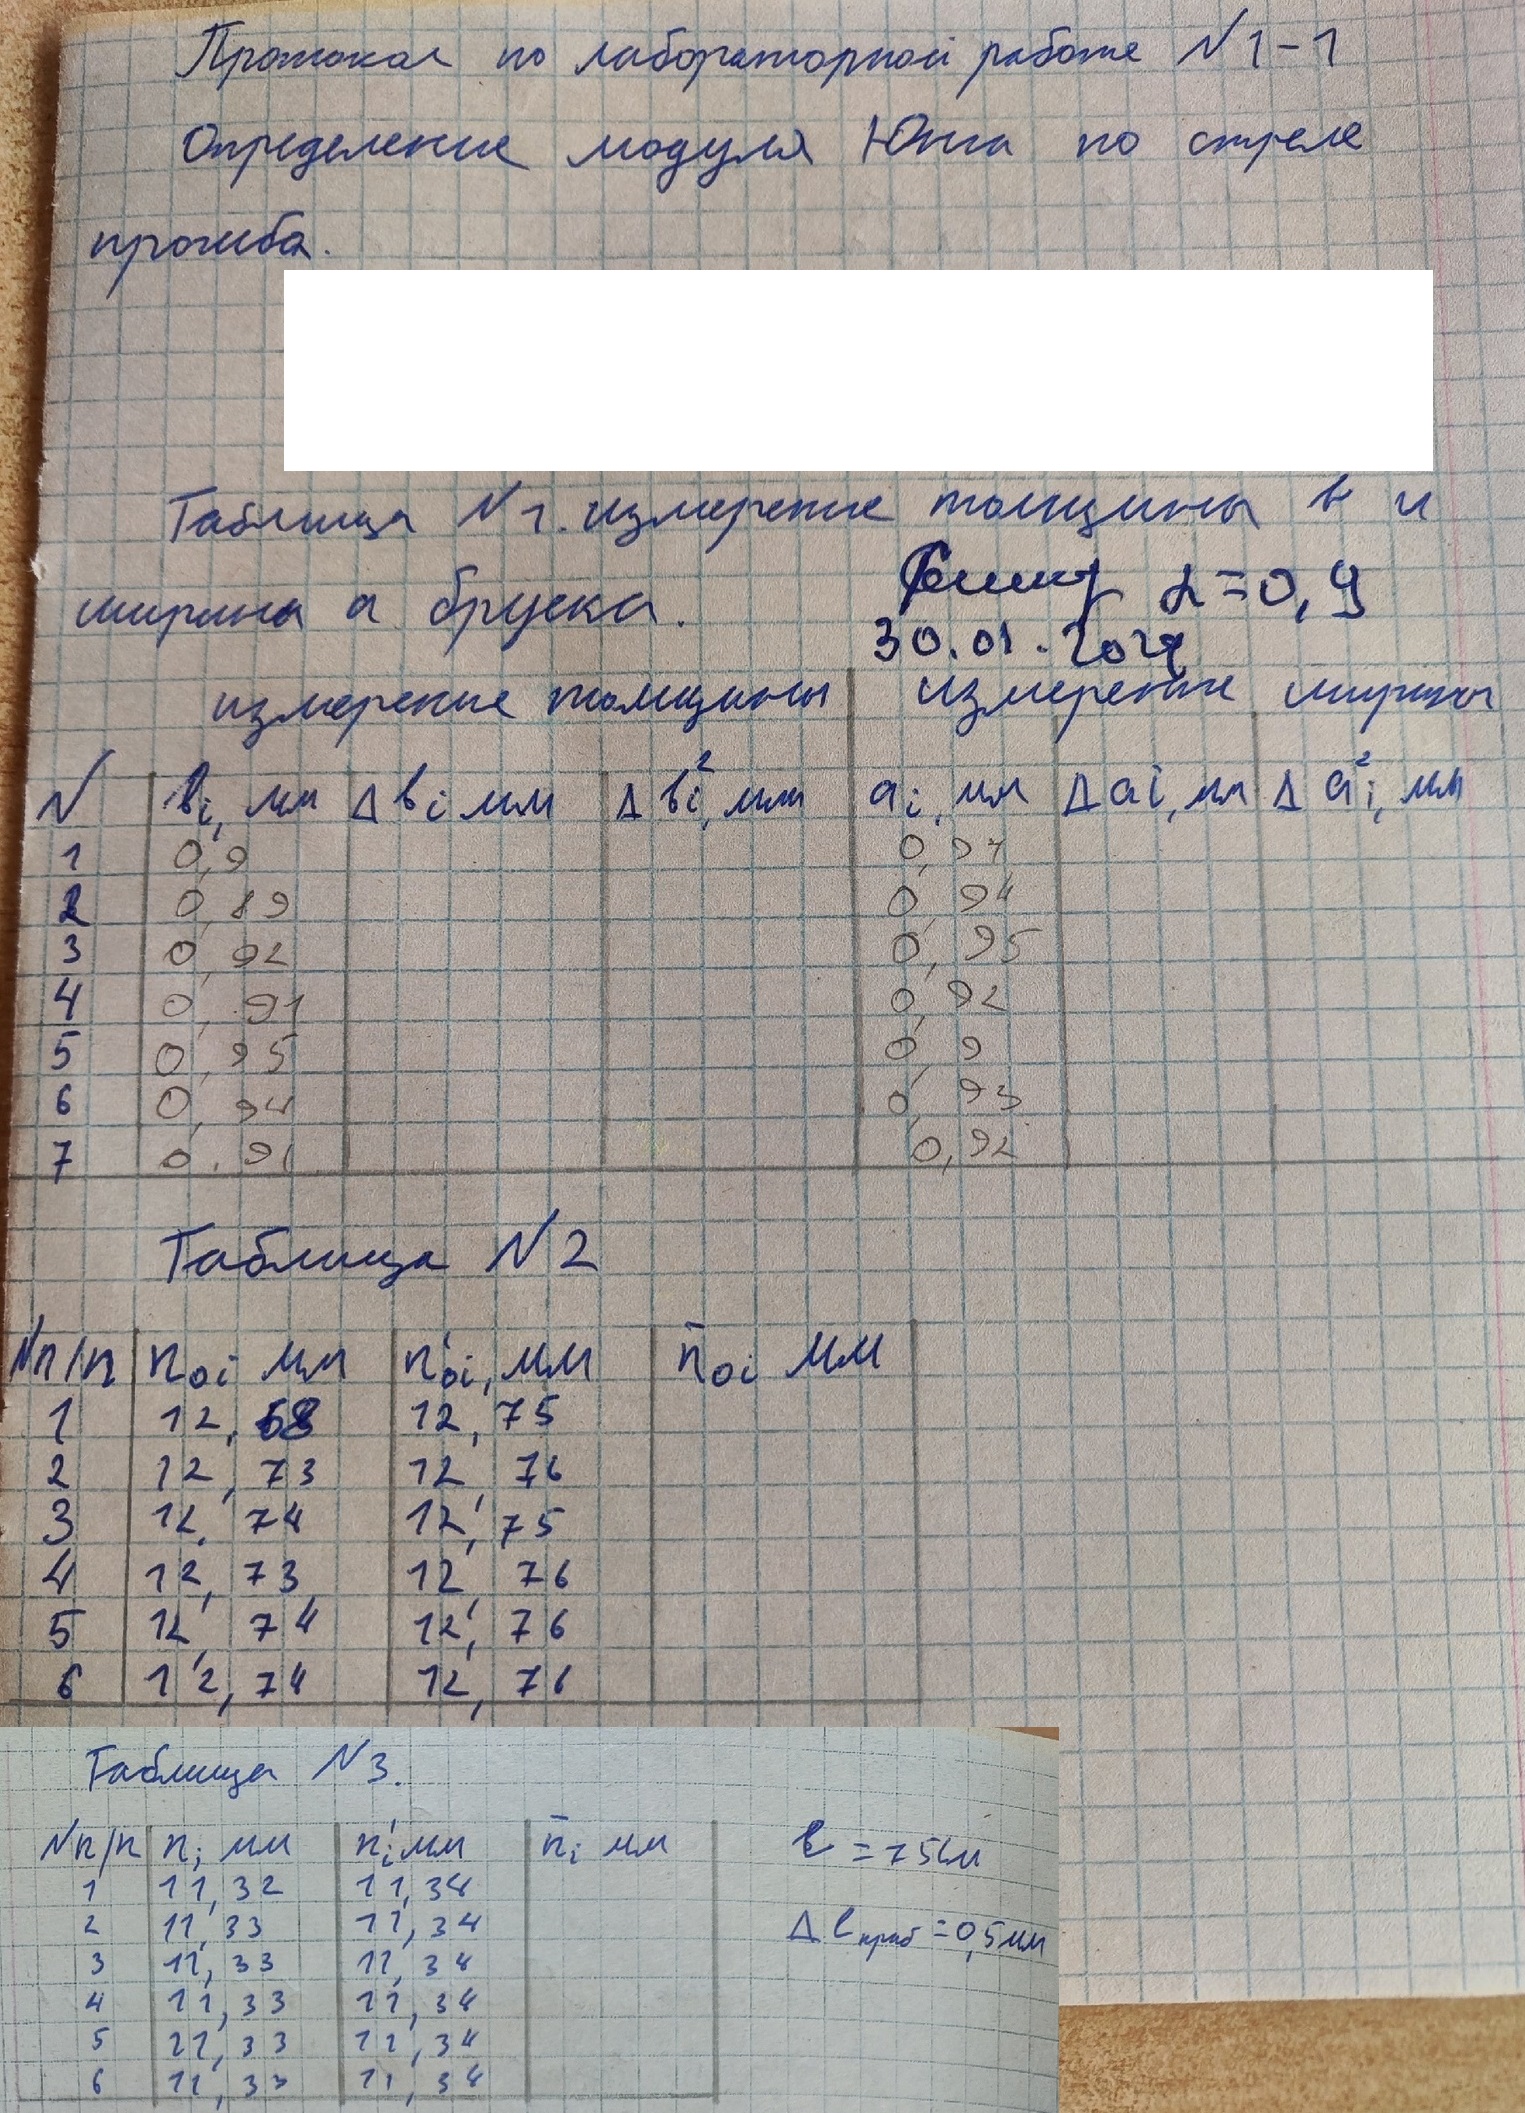 Протокол по лабораторной работе N1-1
Определение модуля Юнга по стреле
прогиба.
Таблица N1. измерение толщины b и
ширина a бруска.
α=0,9
30.01.2024
измерение толщины измерение ширины
N bi, мм Δbi мм Δbi², мм ai, мм Δai, мм Δa²i, мм
1 0,9 0,97
2 0,89 0,94
3 0,92 0,95
4 0,91 0,92
5 0,95 0,9
6 0,94 0,93
7 0,91 0,92
Таблица N2
Nп/п n0i мм n'0i, мм n̄0i мм
1 12,68 12,75
2 12,73 12,76
3 12,74 12,75
4 12,73 12,76
5 12,74 12,76
6 12,74 12,76
Таблица N3.
Nп/п ni мм n'i мм n̄i мм
1 11,32 11,34
2 11,33 11,34
3 11,33 11,34
4 11,33 11,34
5 11,33 11,34
6 11,33 11,34
ℓ = 75см
Δℓприб = 0,5мм